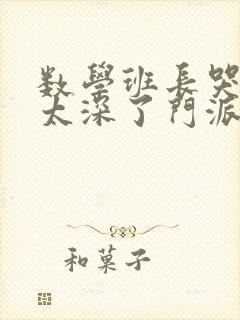 数學班長哭
太深了門派
和菓子